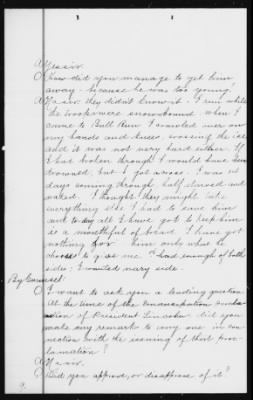 A Yes sir.
Q How did you manage to get him
away - because he was too young?
A No sir. they didn't know it. I run while
the troops were snowbound. when I
came to Bull Run I crawled over on
my hands and knees, crossing the ice
and it was not very hard either. If
I had broken through I would have been
drowned, but I got across. I was
days coming through half starved and
naked. I thought they might take
everything else I had to leave him
and to day all I have got to keep him
is a mouthful of bread I have got
nothing for him only what he
chooses to give me. I had enough of both
sides; I wanted my side.
By Counsel:
Q I want to ask you a leading question
At the time of the emancipation
of President Lincoln did you
make any remark to any one in con
nection with the issuing of that pro-
clamation?
A No sir.
Q Did you approve, or disapprove of it?
9.